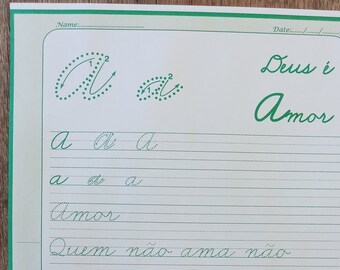 Name: Date: / /
a 1 2 a 1 2
Deus é
Amor
A a A
a a a
Amor
Quem não ama não